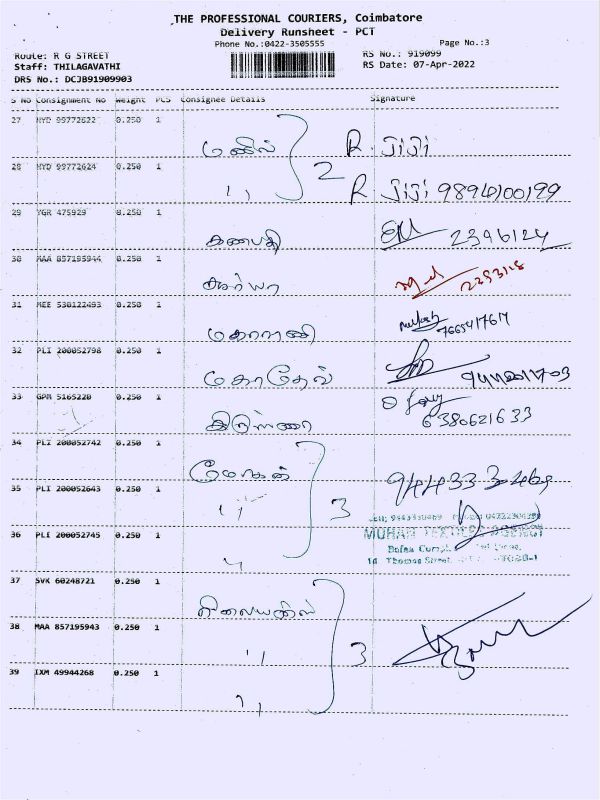 THE PROFESSIONAL COURIERS, Coimbatore
Delivery Runsheet - PCT
Phone No.:0422-3505555
Page No.:3
Route: R G STREET
RS No.: 919099
Staff: THILAGAVATHI
RS Date: 07-Apr-2022
DRS No.: DCJB91909903
S No Consignment No Weight PCS Consignee Details Signature
27 HYD 99772622 0.250 1
R. JiJi
28 HYD 99772624 0.250 1
,, 2 R JiJi 9894100199
29 YGR 475929 0.250 1
கணபதி 2396124
30 MAA 857195944 0.250 1
சூர்யா 2393118
31 MEE 530122493 0.250 1
மகாராணி
32 PLI 200052798 0.250 1
33 GPM 5165220 0.250 1
6380621633
34 PLI 200052742 0.250 1
மோகன்
35 PLI 200052643 0.250 1
,, 3
36 PLI 200052745 0.250 1
,,
Thomas Street
37 SVK 60248721 0.250 1
38 MAA 857195943 0.250 1
,, 3
39 IXM 49944268 0.250 1
,,